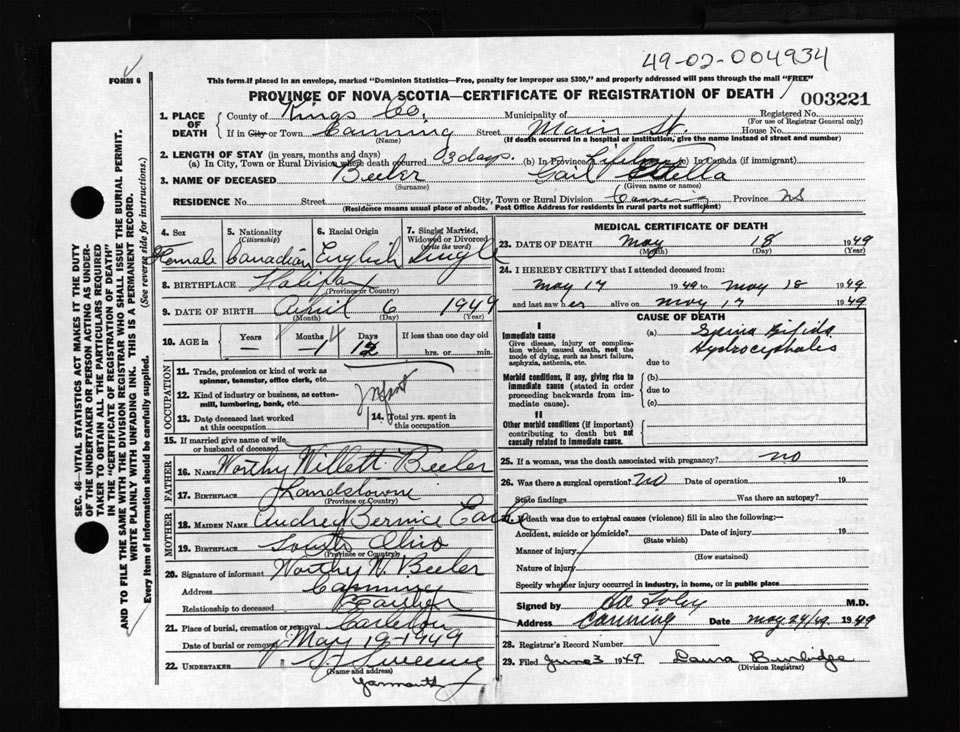 49-02-004934
FORM 6
This form if placed in an envelope, marked "Dominion Statistics—Free, penalty for improper use $300," and properly addressed will pass through the mail "FREE"
PROVINCE OF NOVA SCOTIA—CERTIFICATE OF REGISTRATION OF DEATH
003221
1. PLACE OF DEATH
County of Kings Co, Municipality of Registered No.
(For use of Registrar General only)
If in City or Town Canning Street Main St. House No.
(Name) (If death occurred in a hospital or institution, give the name instead of street and number)
2. LENGTH OF STAY (in years, months and days)
(a) In City, Town or Rural Division where death occurred 03 days. (b) In Province Lifetime (c) In Canada (if immigrant)
3. NAME OF DECEASED Beeler Gail Estella
(Surname) (Given name or names)
RESIDENCE No. Street City, Town or Rural Division Canning Province NS
(Residence means usual place of abode. Post Office Address for residents in rural parts not sufficient)
4. Sex Female
5. Nationality (Citizenship) Canadian
6. Racial Origin English
7. Single, Married, Widowed or Divorced (write the word) Single
8. BIRTHPLACE Halifax
(Province or Country)
9. DATE OF BIRTH April 6 1949
(Month) (Day) (Year)
10. AGE in Years Months 1 Days 12 If less than one day old hrs. or min.
OCCUPATION
11. Trade, profession or kind of work as spinner, teamster, office clerk, etc.
12. Kind of industry or business, as cotton-mill, lumbering, bank, etc. Infant
13. Date deceased last worked at this occupation
14. Total yrs. spent in this occupation
15. If married give name of wife or husband of deceased
FATHER
16. NAME Worthy Willett Beeler
17. BIRTHPLACE
(Province or Country)
MOTHER
18. MAIDEN NAME Audrey Bernice
19. BIRTHPLACE South Ohio
(Province or Country)
20. Signature of informant Worthy W. Beeler
Address Canning
Relationship to deceased Father
21. Place of burial, cremation or removal Carleton
Date of burial or removal May 19-1949
22. UNDERTAKER Sweeny
(Name and address)
Yarmouth
MEDICAL CERTIFICATE OF DEATH
23. DATE OF DEATH May 18 1949
(Month) (Day) (Year)
24. I HEREBY CERTIFY that I attended deceased from:
May 17 1949 to May 18 1949
and last saw her alive on May 17 1949
CAUSE OF DEATH
I
Immediate cause
Give disease, injury or complication which caused death, not the mode of dying, such as heart failure, asphyxia, asthenia, etc.
(a) Spina Bifida
Hydrocephalis
due to
Morbid conditions, if any, giving rise to immediate cause (stated in order proceeding backwards from immediate cause).
(b)
due to
(c)
II
Other morbid conditions (if important) contributing to death but not causally related to immediate cause.
25. If a woman, was the death associated with pregnancy? no
26. Was there a surgical operation? NO Date of operation 19
State findings Was there an autopsy?
If death was due to external causes (violence) fill in also the following:—
Accident, suicide or homicide? Date of injury 19
(State which)
Manner of injury
(How sustained)
Nature of injury
Specify whether injury occurred in industry, in home, or in public place
Signed by M.D.
Address Canning Date May 24/49. 1949
28. Registrar's Record Number
29. Filed June 3 1949 Laura Burbidge
(Division Registrar)
SEC. 46—VITAL STATISTICS ACT MAKES IT THE DUTY
OF THE UNDERTAKER OR PERSON ACTING AS UNDERTAKER TO OBTAIN ALL THE PARTICULARS REQUIRED
IN THE "CERTIFICATE OF REGISTRATION OF DEATH"
AND TO FILE THE SAME WITH THE DIVISION REGISTRAR WHO SHALL ISSUE THE BURIAL PERMIT.
WRITE PLAINLY WITH UNFADING INK. THIS IS A PERMANENT RECORD.
Every item of information should be carefully supplied. (See reverse side for instructions.)